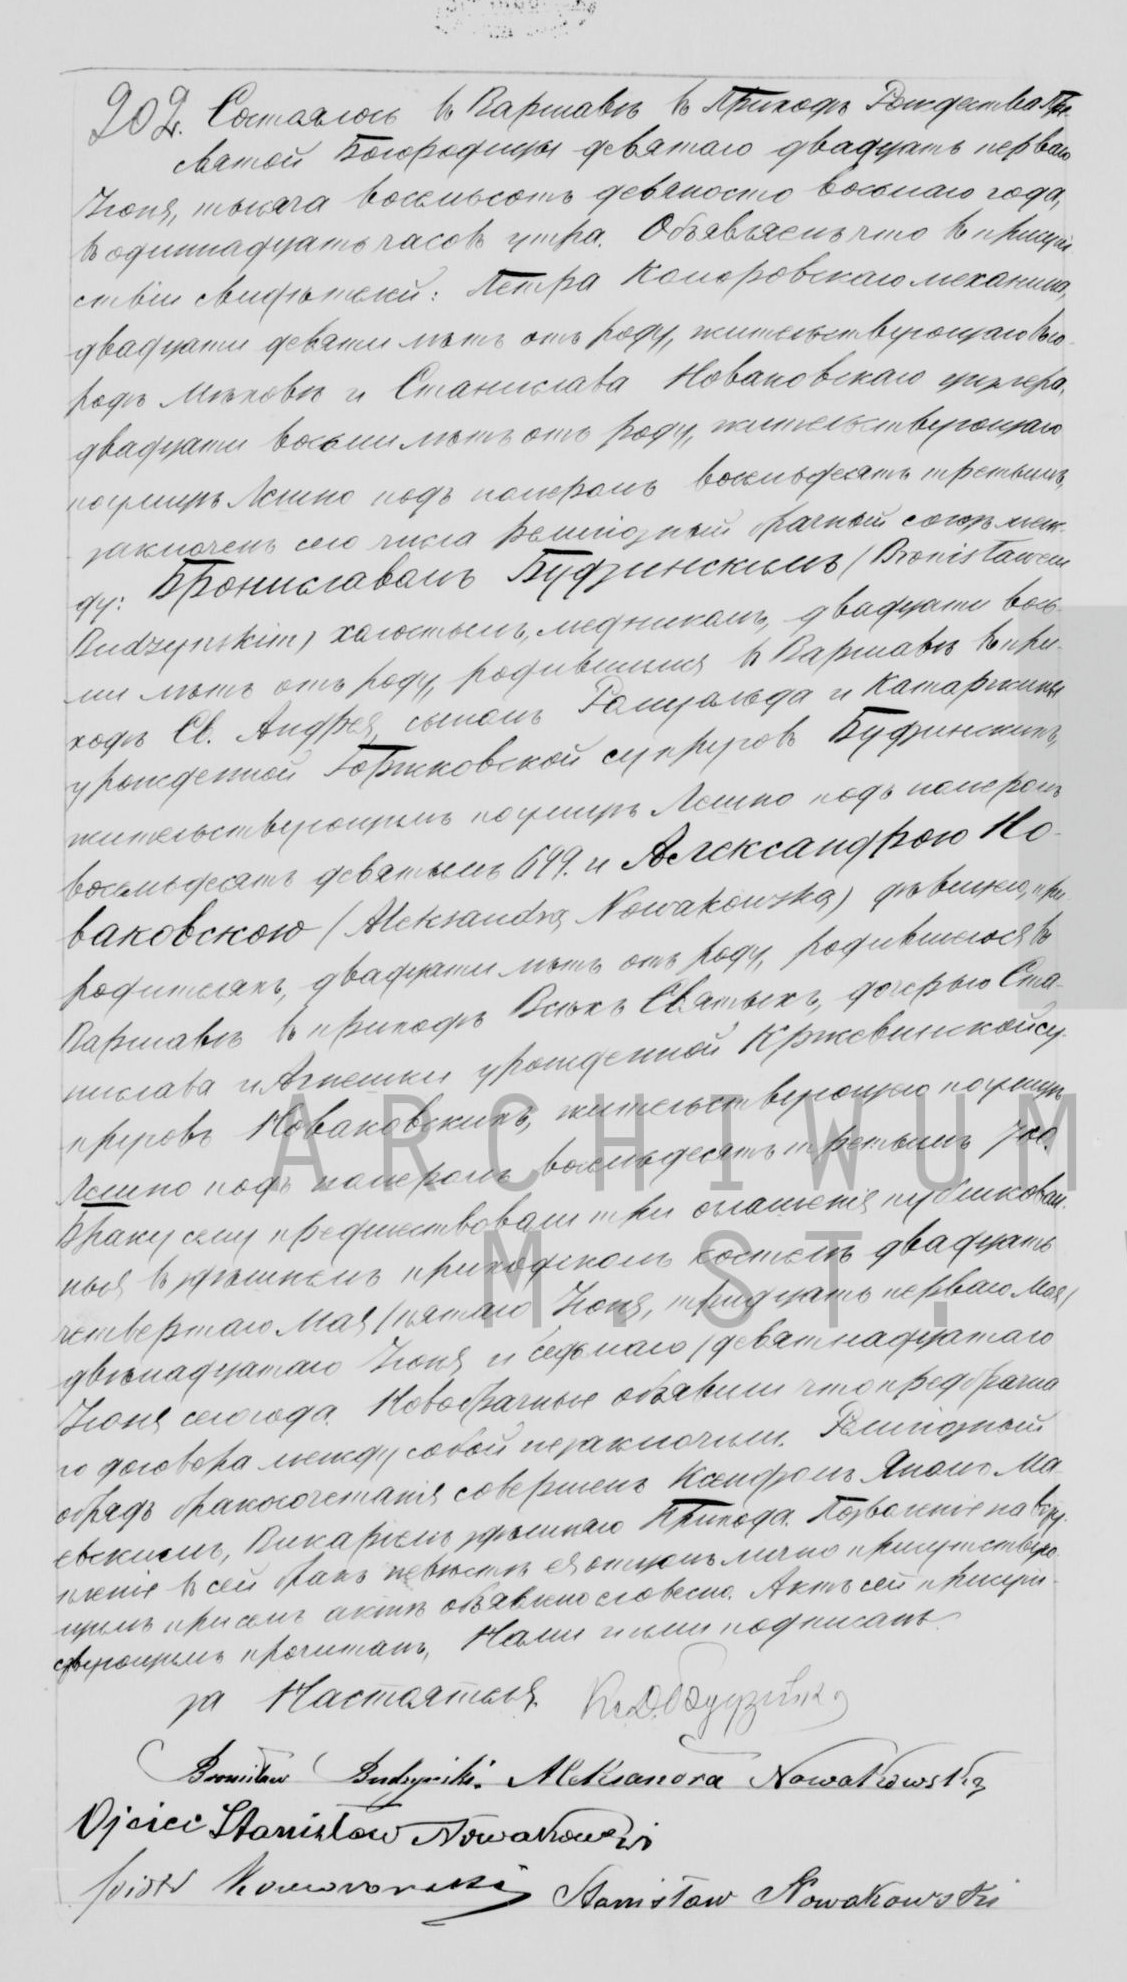 202. Состоялось въ Варшавѣ въ Приходѣ Рождества Пре-
святой Богородицы девятаго двадцать перваго
Іюня, тысяча восемьсотъ девяносто восьмаго года,
въ одиннадцать часовъ утра. Объявляемъ что въ присут-
ствіи свидѣтелей: Петра Коморовскаго механика,
двадцати девяти лѣтъ отъ роду, жительствующаго въ го-
родѣ Мѣховѣ и Станислава Новаковскаго
двадцати восьми лѣтъ отъ роду, жительствующаго
по улицѣ Лешно подъ номеромъ восемьдесятъ третьимъ,
заключенъ сего числа религіозный брачный союзъ меж-
ду: Брониславомъ Будзинскимъ (Bronisławem
Budzyńskim) холостымъ, мѣдникомъ, двадцати вось-
ми лѣтъ отъ роду, родившимся въ Варшавѣ въ при-
ходѣ Св. Андрея, сыномъ Ромуальда и Катаржины
урожденной Горжковской супруговъ Будзинскихъ,
жительствующимъ по улицѣ Лешно подъ номеромъ
восемьдесятъ девятымъ 699. и Александрою Но-
ваковскою (Aleksandrą Nowakowską) дѣвицею, при
родителяхъ, двадцати лѣтъ отъ роду, родившеюся въ
Варшавѣ въ приходѣ Всѣхъ Святыхъ, дочерью Ста-
нислава и Агнешки урожденной Кржевинской су-
пруговъ Новаковскихъ, жительствующею по улицѣ
Лешно подъ номеромъ восемьдесятъ третьимъ 700.
Браку сему предшествовали три оглашенія публикован-
ныя въ здѣшнемъ приходскомъ костелѣ двадцать
четвертаго Мая (пятаго Іюня, тридцать перваго Мая)
двѣнадцатаго Іюня и седьмаго (девятнадцатаго
Іюня сего года. Новобрачные объявили что предбрачна-
го договора между собой не заключили. Религіозный
обрядъ бракосочетанія совершенъ Ксендзомъ Яномъ Ма-
евскимъ, Викаріемъ здѣшняго Прихода. Позволеніе на всту-
пленіе въ сей бракъ невѣстѣ ея отцомъ лично присутствую-
щимъ при семъ актѣ объявлено словесно. Актъ сей присут-
ствующимъ прочитанъ, Нами и ими подписанъ.
за Настоятеля.
Bronisław Budzyński. Aleksandra Nowakowska
Ojciec Stanisław Nowakowski
Piotr Komorowski Stanisław Nowakowski
ARCHIWUM
M. ST.